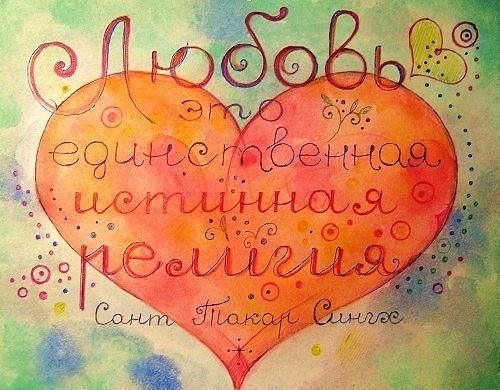 Любовь
это
единственная
истинная
религия
Сант Такар Сингх